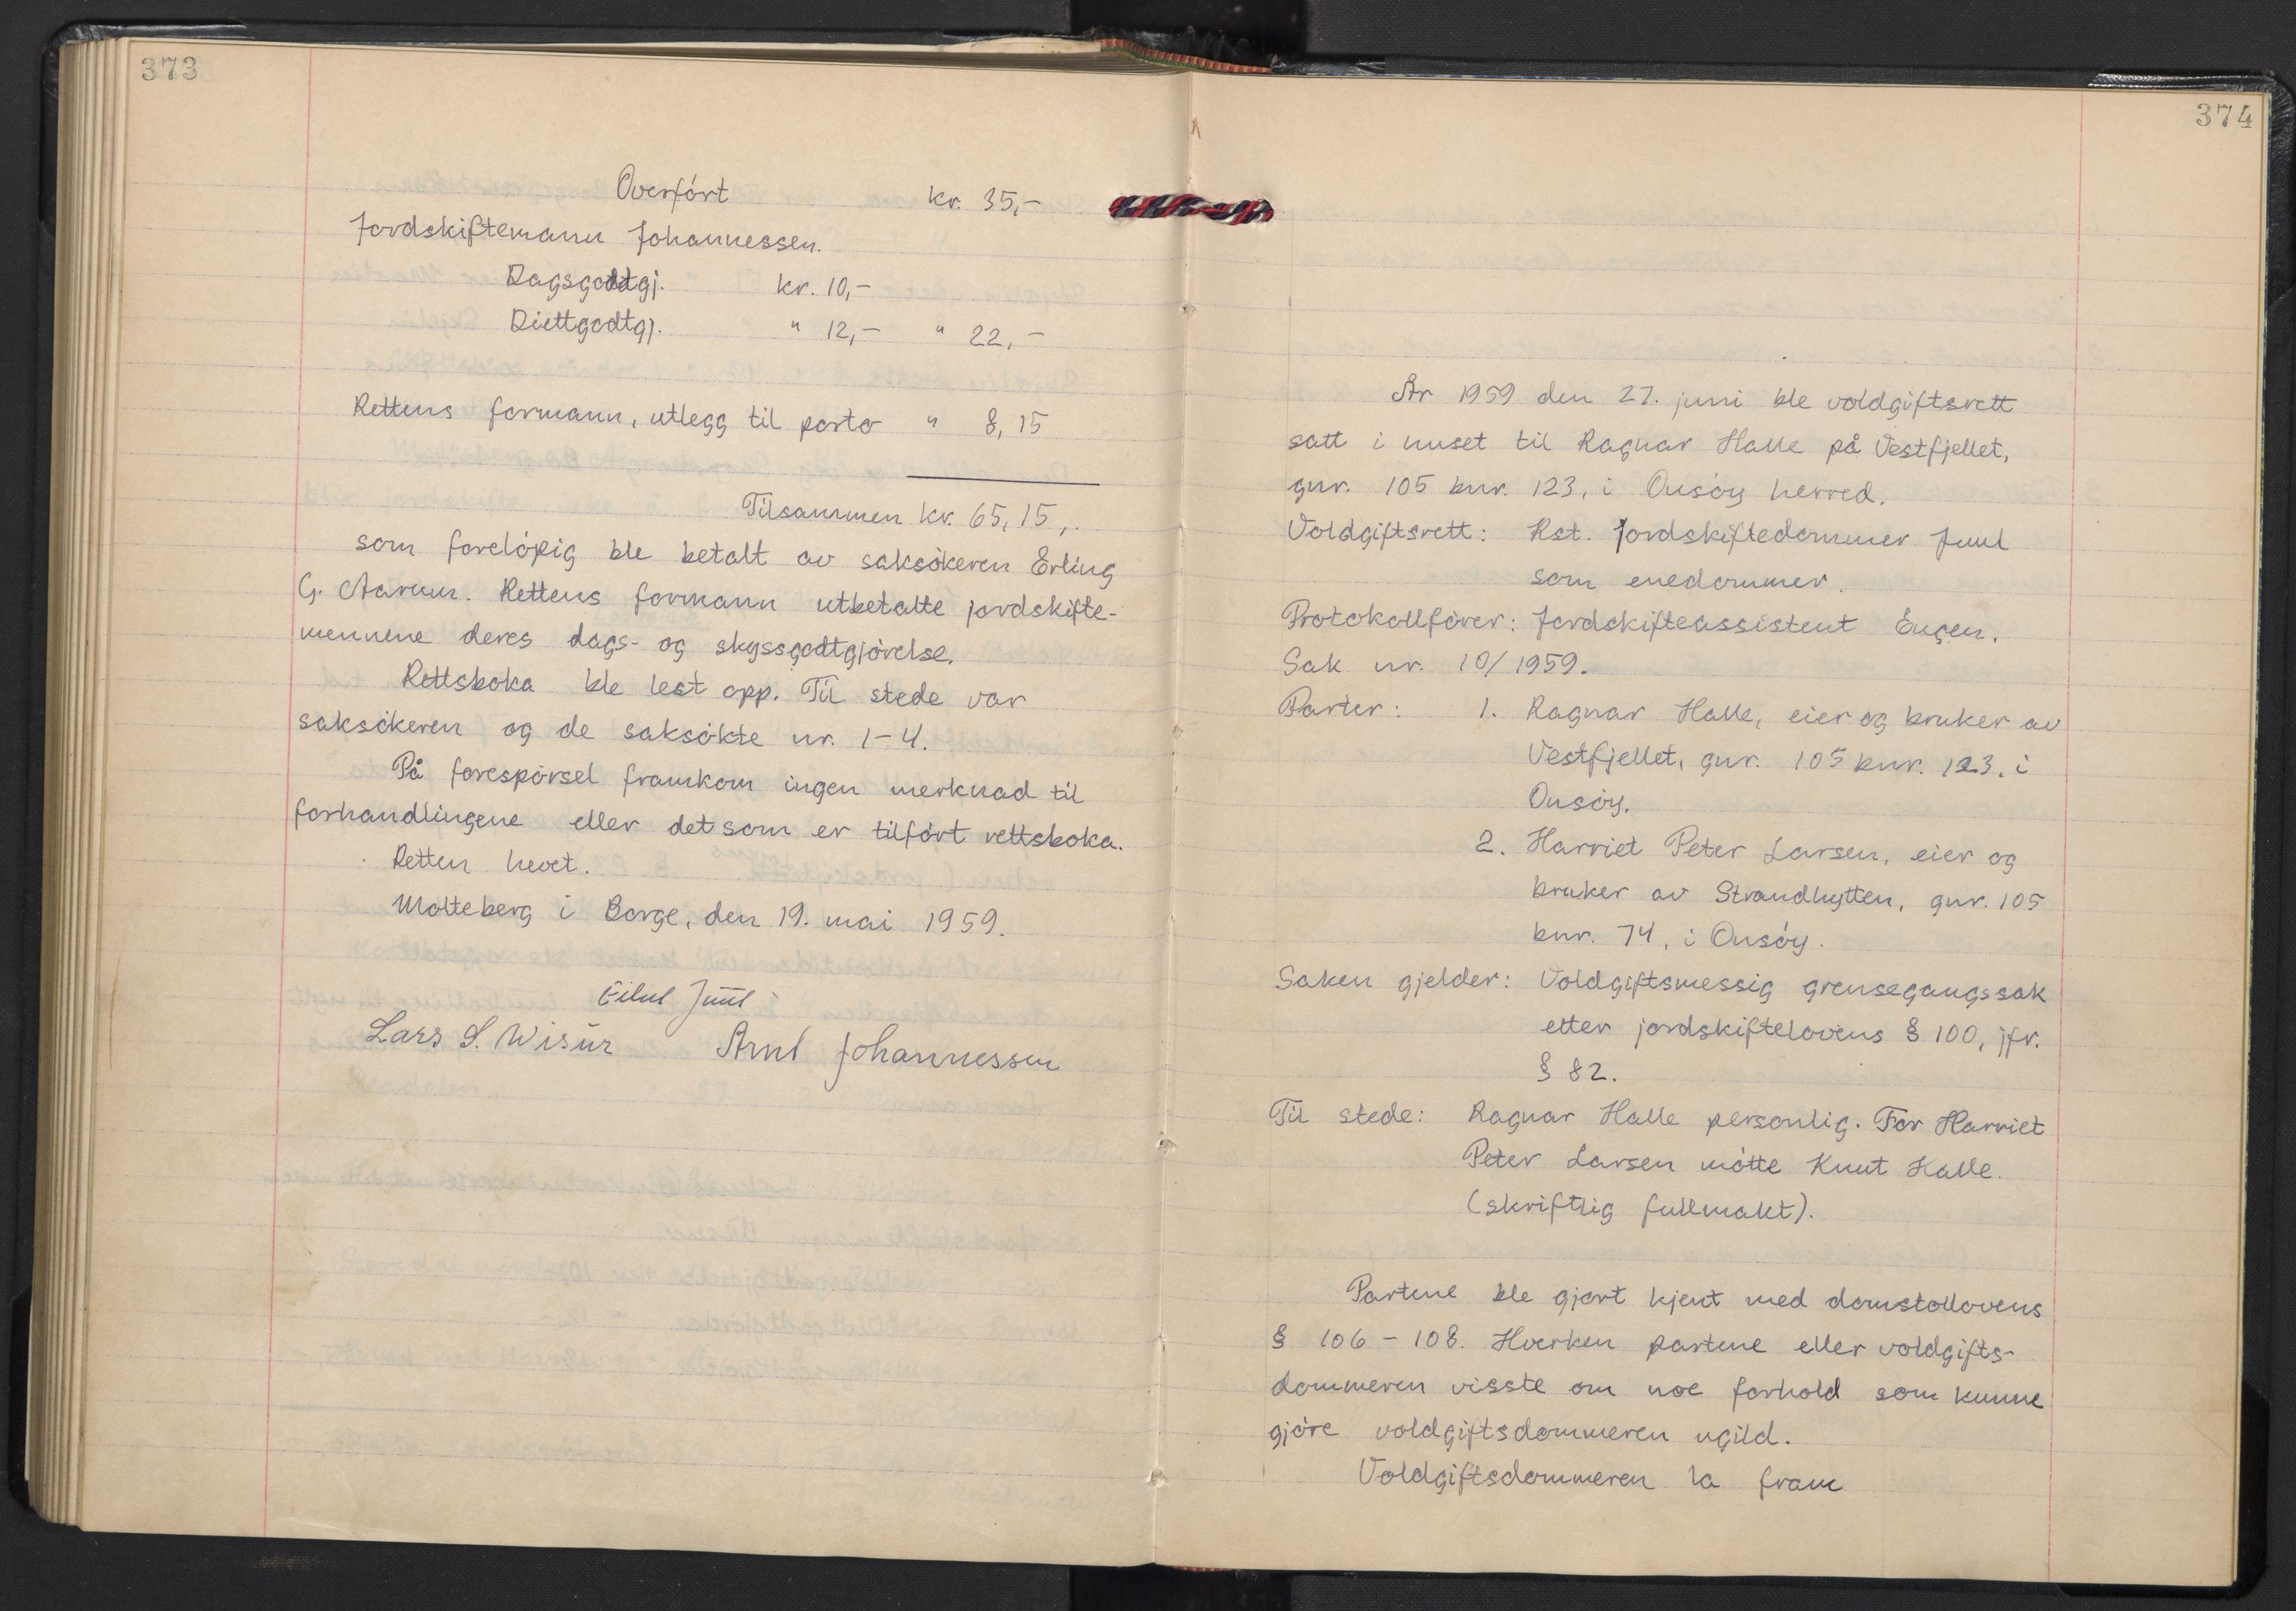 373
Overført kr. 35,-
Jordskiftemann Johannessen.
Dagsgodtgj. kr. 10,-
Diettgodtgj. " 12,- " 22,-
Rettens formann, utlegg til porto " 8,15
Tilsammen kr. 65,15,.
som foreløpig ble betalt av saksøkeren Erling
G. Aarum. Rettens formann utbetalte jordskifte-
mennene deres dags- og skyssgodtgjørelse.
Rettsboka ble lest opp. Til stede var
saksøkeren og de saksøkte nr. 1-4.
På forespørsel framkom ingen merknad til
forhandlingene eller det som er tilført rettsboka.
Retten hevet.
Molteberg i Borge, den 19. mai 1959.
Juul
Lars S. Wisur Arnt Johannessen
374
År 1959 den 27. juni ble voldgiftsrett
satt i huset til Ragnar Halle på Vestfjellet,
gnr. 105 bnr. 123, i Onsøy herred.
Voldgiftsrett: Kst. Jordskiftedommer Juul
som enedommer.
Protokollfører: Jordskifteassistent Engen.
Sak nr. 10/1959.
Parter: 1. Ragnar Halle, eier og bruker av
Vestfjellet, gnr. 105 bnr. 123, i
Onsøy.
2. Harriet Peter Larsen, eier og
bruker av Strandhytten, gnr. 105
bnr. 74, i Onsøy.
Saken gjelder: Voldgiftsmessig grensegangssak
etter jordskiftelovens § 100, jfr.
§ 82.
Til stede: Ragnar Halle personlig. For Harriet
Peter Larsen møtte Knut Halle.
(skriftlig fullmakt).
Partene ble gjort kjent med domstollovens
§ 106 - 108. Hverken partene eller voldgifts-
dommeren visste om noe forhold som kunne
gjøre voldgiftsdommeren ugild.
Voldgiftsdommeren la fram